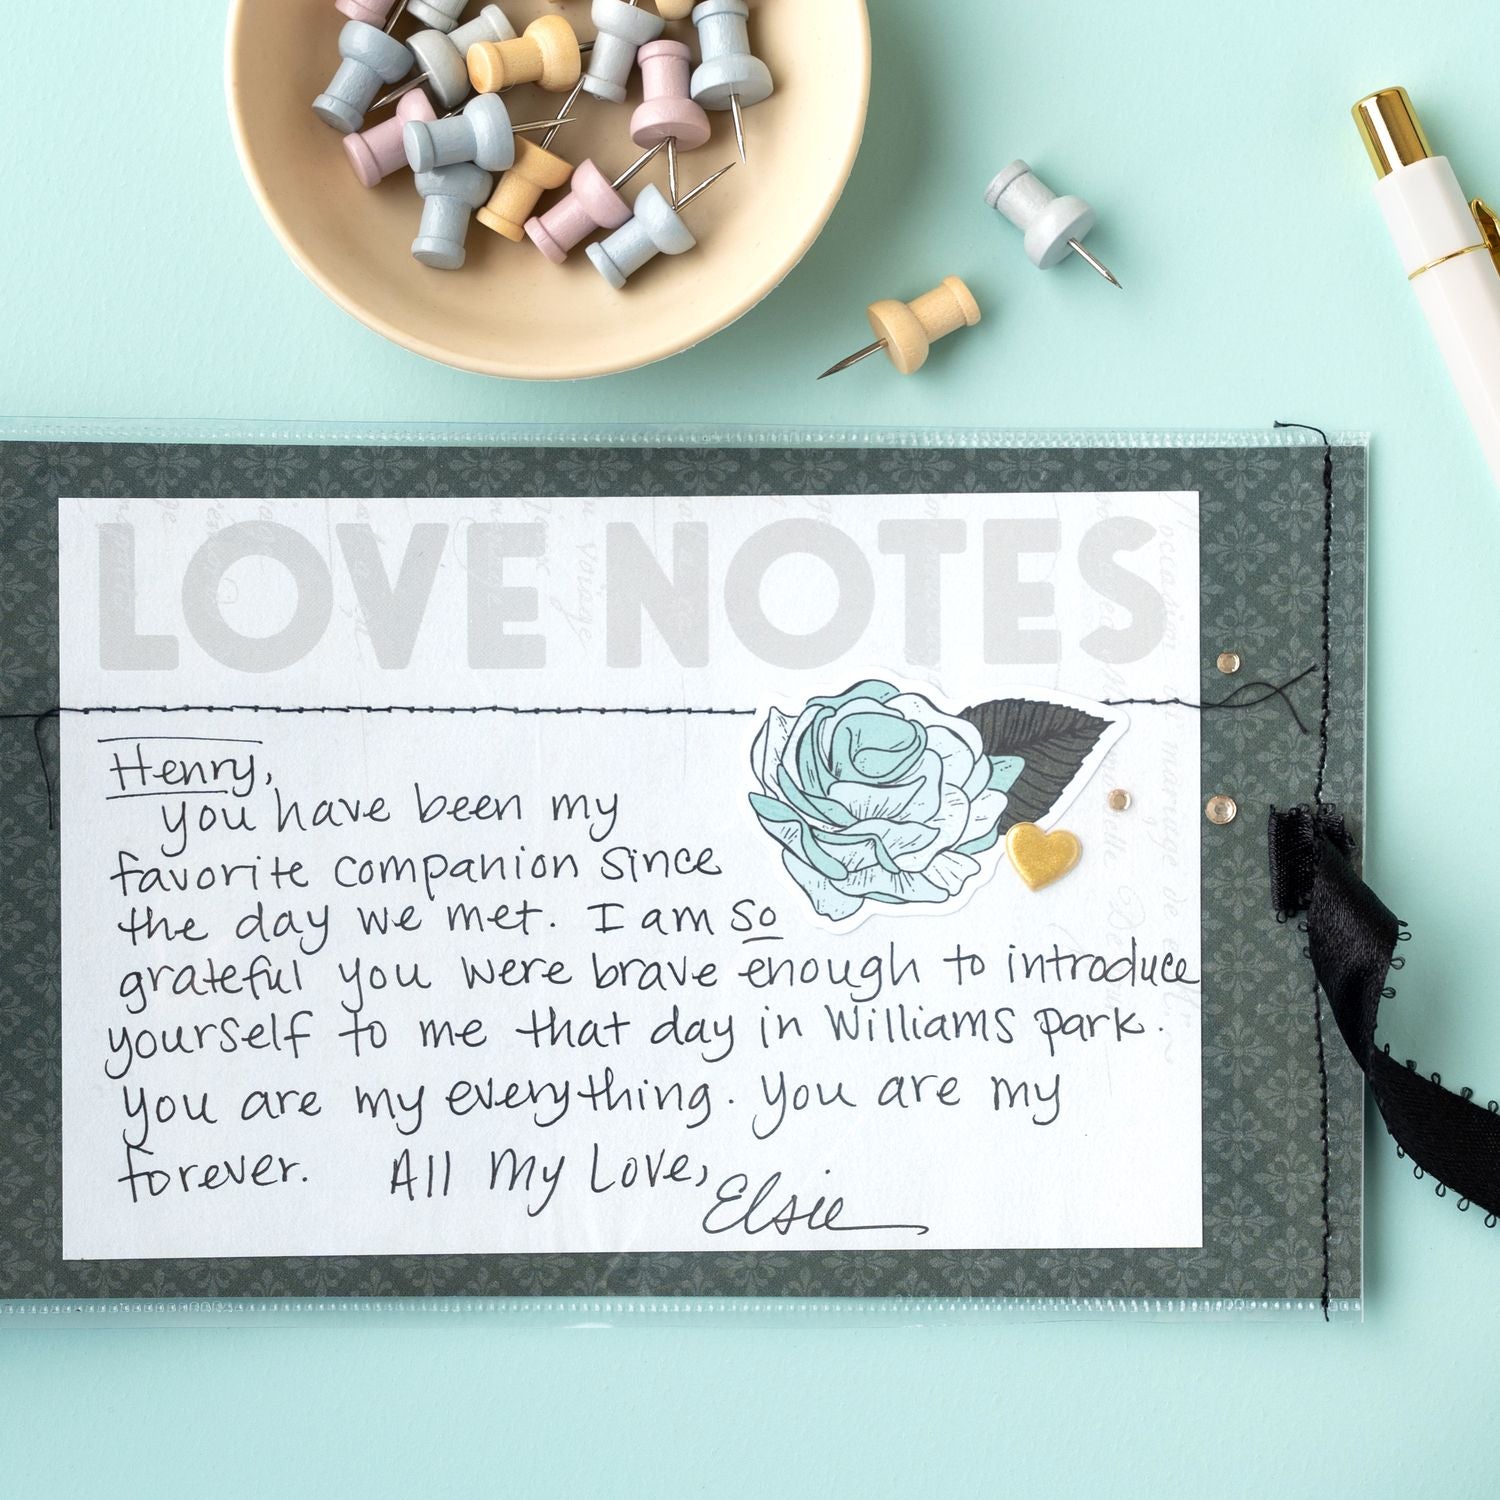 LOVE NOTES
Henry,
you have been my
favorite companion since
the day we met. I am so
grateful you were brave enough to introduce
yourself to me that day in Williams park.
you are my everything. you are my
forever. All My Love,
Elsie